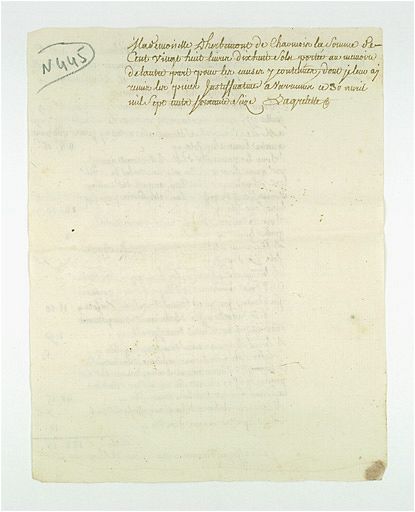 N 445
Mademoiselle D'herbemont de Charmois la somme de
Cent vingt huit livres dixhuit sols portée au memoire
de lautre part pour les causes y contenües, dont je leur ai
remis les pieces Justificatives a Novemmier ce 30 avril
mil sept cents soixante Seize